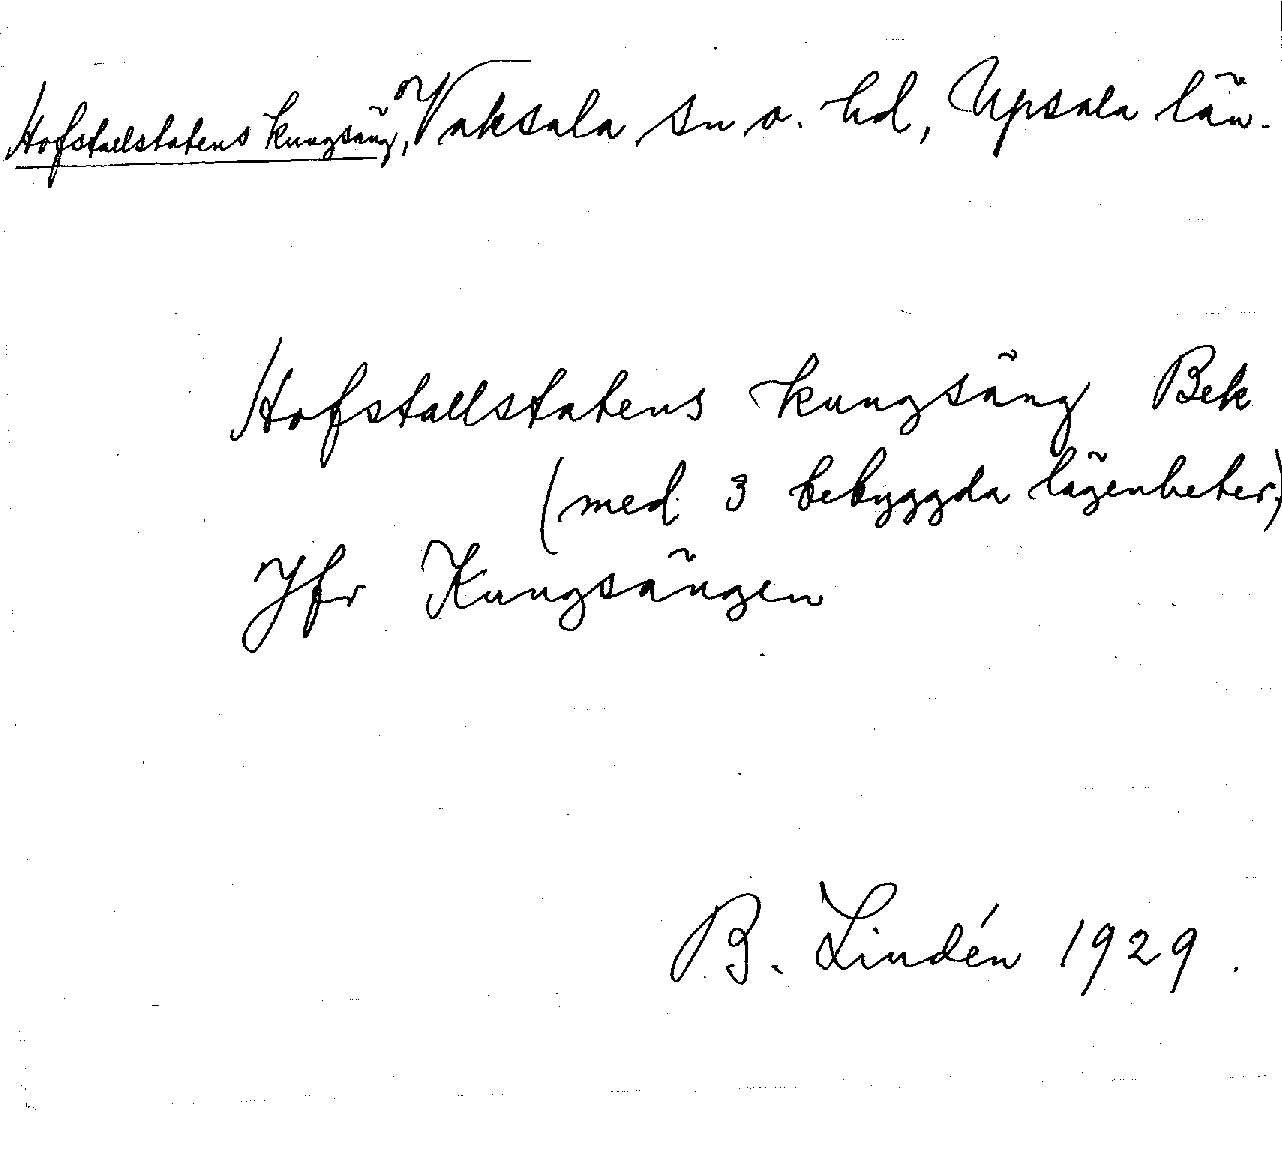 Hofstallstatens kungsäng, Vaksala sn o. hd, Upsala län.
Hofstallstatens kungsäng Bek
(med 3 bebyggda lägenheter)
Jfr Kungsängen
B. Lindén 1929.